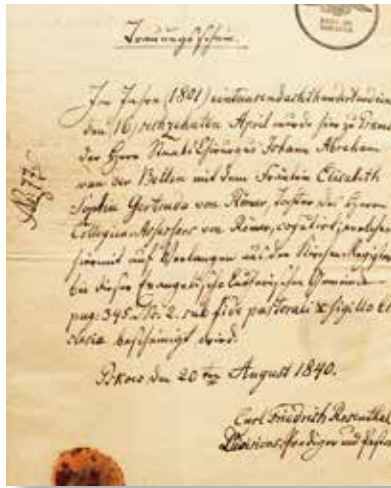 Trauungsschein.
Im Jahre (1801) eintausendachthundertundein
den 16) sechzehnten April wurde hier zu
der Herr Johann Abraham
van der Bellen mit dem Fräulein Elisabeth
Sophia Gertruda von Römer, Tochter des Herrn
Collegienassessors von Römer, copulirt, welches
hiermit auf Verlangen aus den Kirchen
bei dieser Evangelisch Lutherischen Gemeinde
pag: 345. No. 2. sub fide pastorali & sigillo
bescheinigt wird.
Pskow den 20ten August 1840.
Carl Friedrich Rosenthal
Divisions-Prediger und